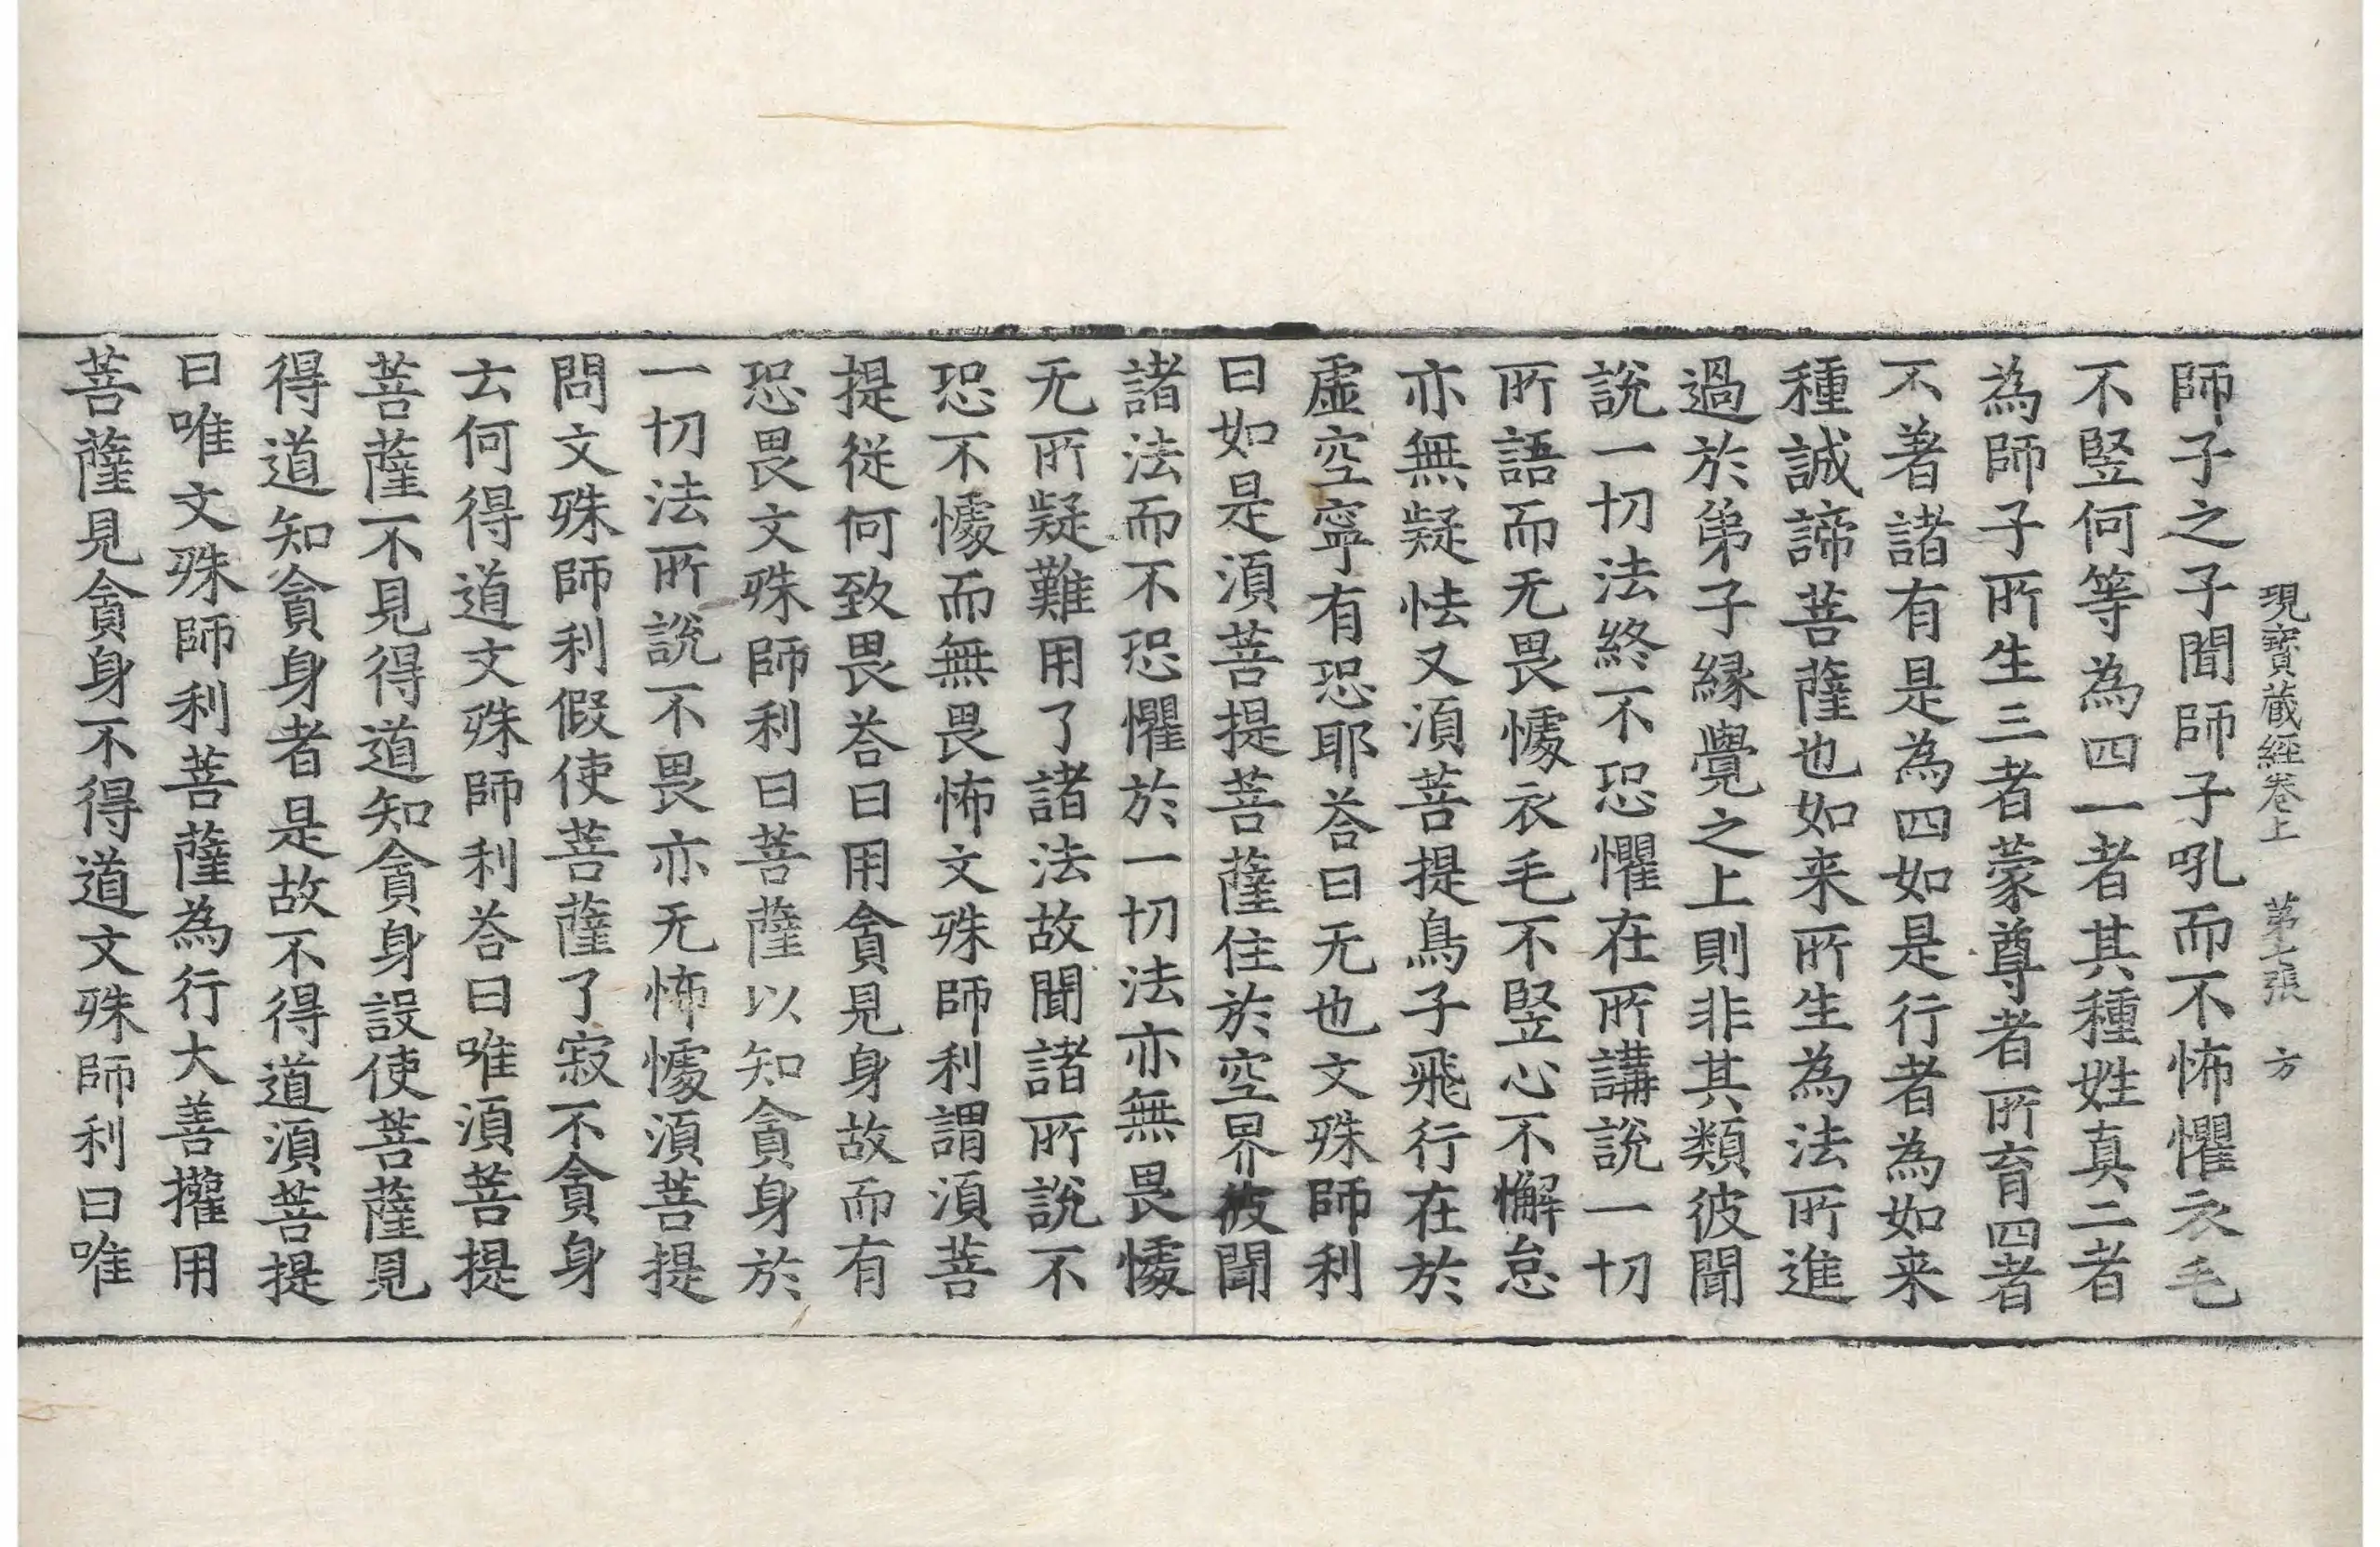 現寳蔵經卷上　第七張　方
師子之子聞師子吼而不怖懼衣毛
不竪何等為四一者其種姓真二者
為師子所生三者蒙尊者所育四者
不著諸有是為四如是行者為如来
種誠諦菩薩也如来所生為法所進
過於弟子縁覺之上則非其類彼聞
說一切法終不恐懼在所講說一切
所語而无畏懅衣毛不竪心不懈怠
亦無疑怯又湏菩提鳥子飛行在於
虛空寧有恐耶荅曰无也文殊師利
曰如是湏菩提菩薩住於空界彼聞
諸法而不恐懼於一切法亦無畏懅
无所疑難用了諸法故聞諸所說不
恐不懅而無畏怖文殊師利謂湏菩
提從何致畏荅曰用貪見身故而有
恐畏文殊師利曰菩薩以知貪身於
一切法所說不畏亦无怖懅湏菩提
問文殊師利假使菩薩了寂不貪身
云何得道文殊師利荅曰唯湏菩提
菩薩不見得道知貪身設使菩薩見
得道知貪身者是故不得道湏菩提
曰唯文殊師利菩薩為行大善攉用
菩薩見貪身不得道文殊師利曰唯